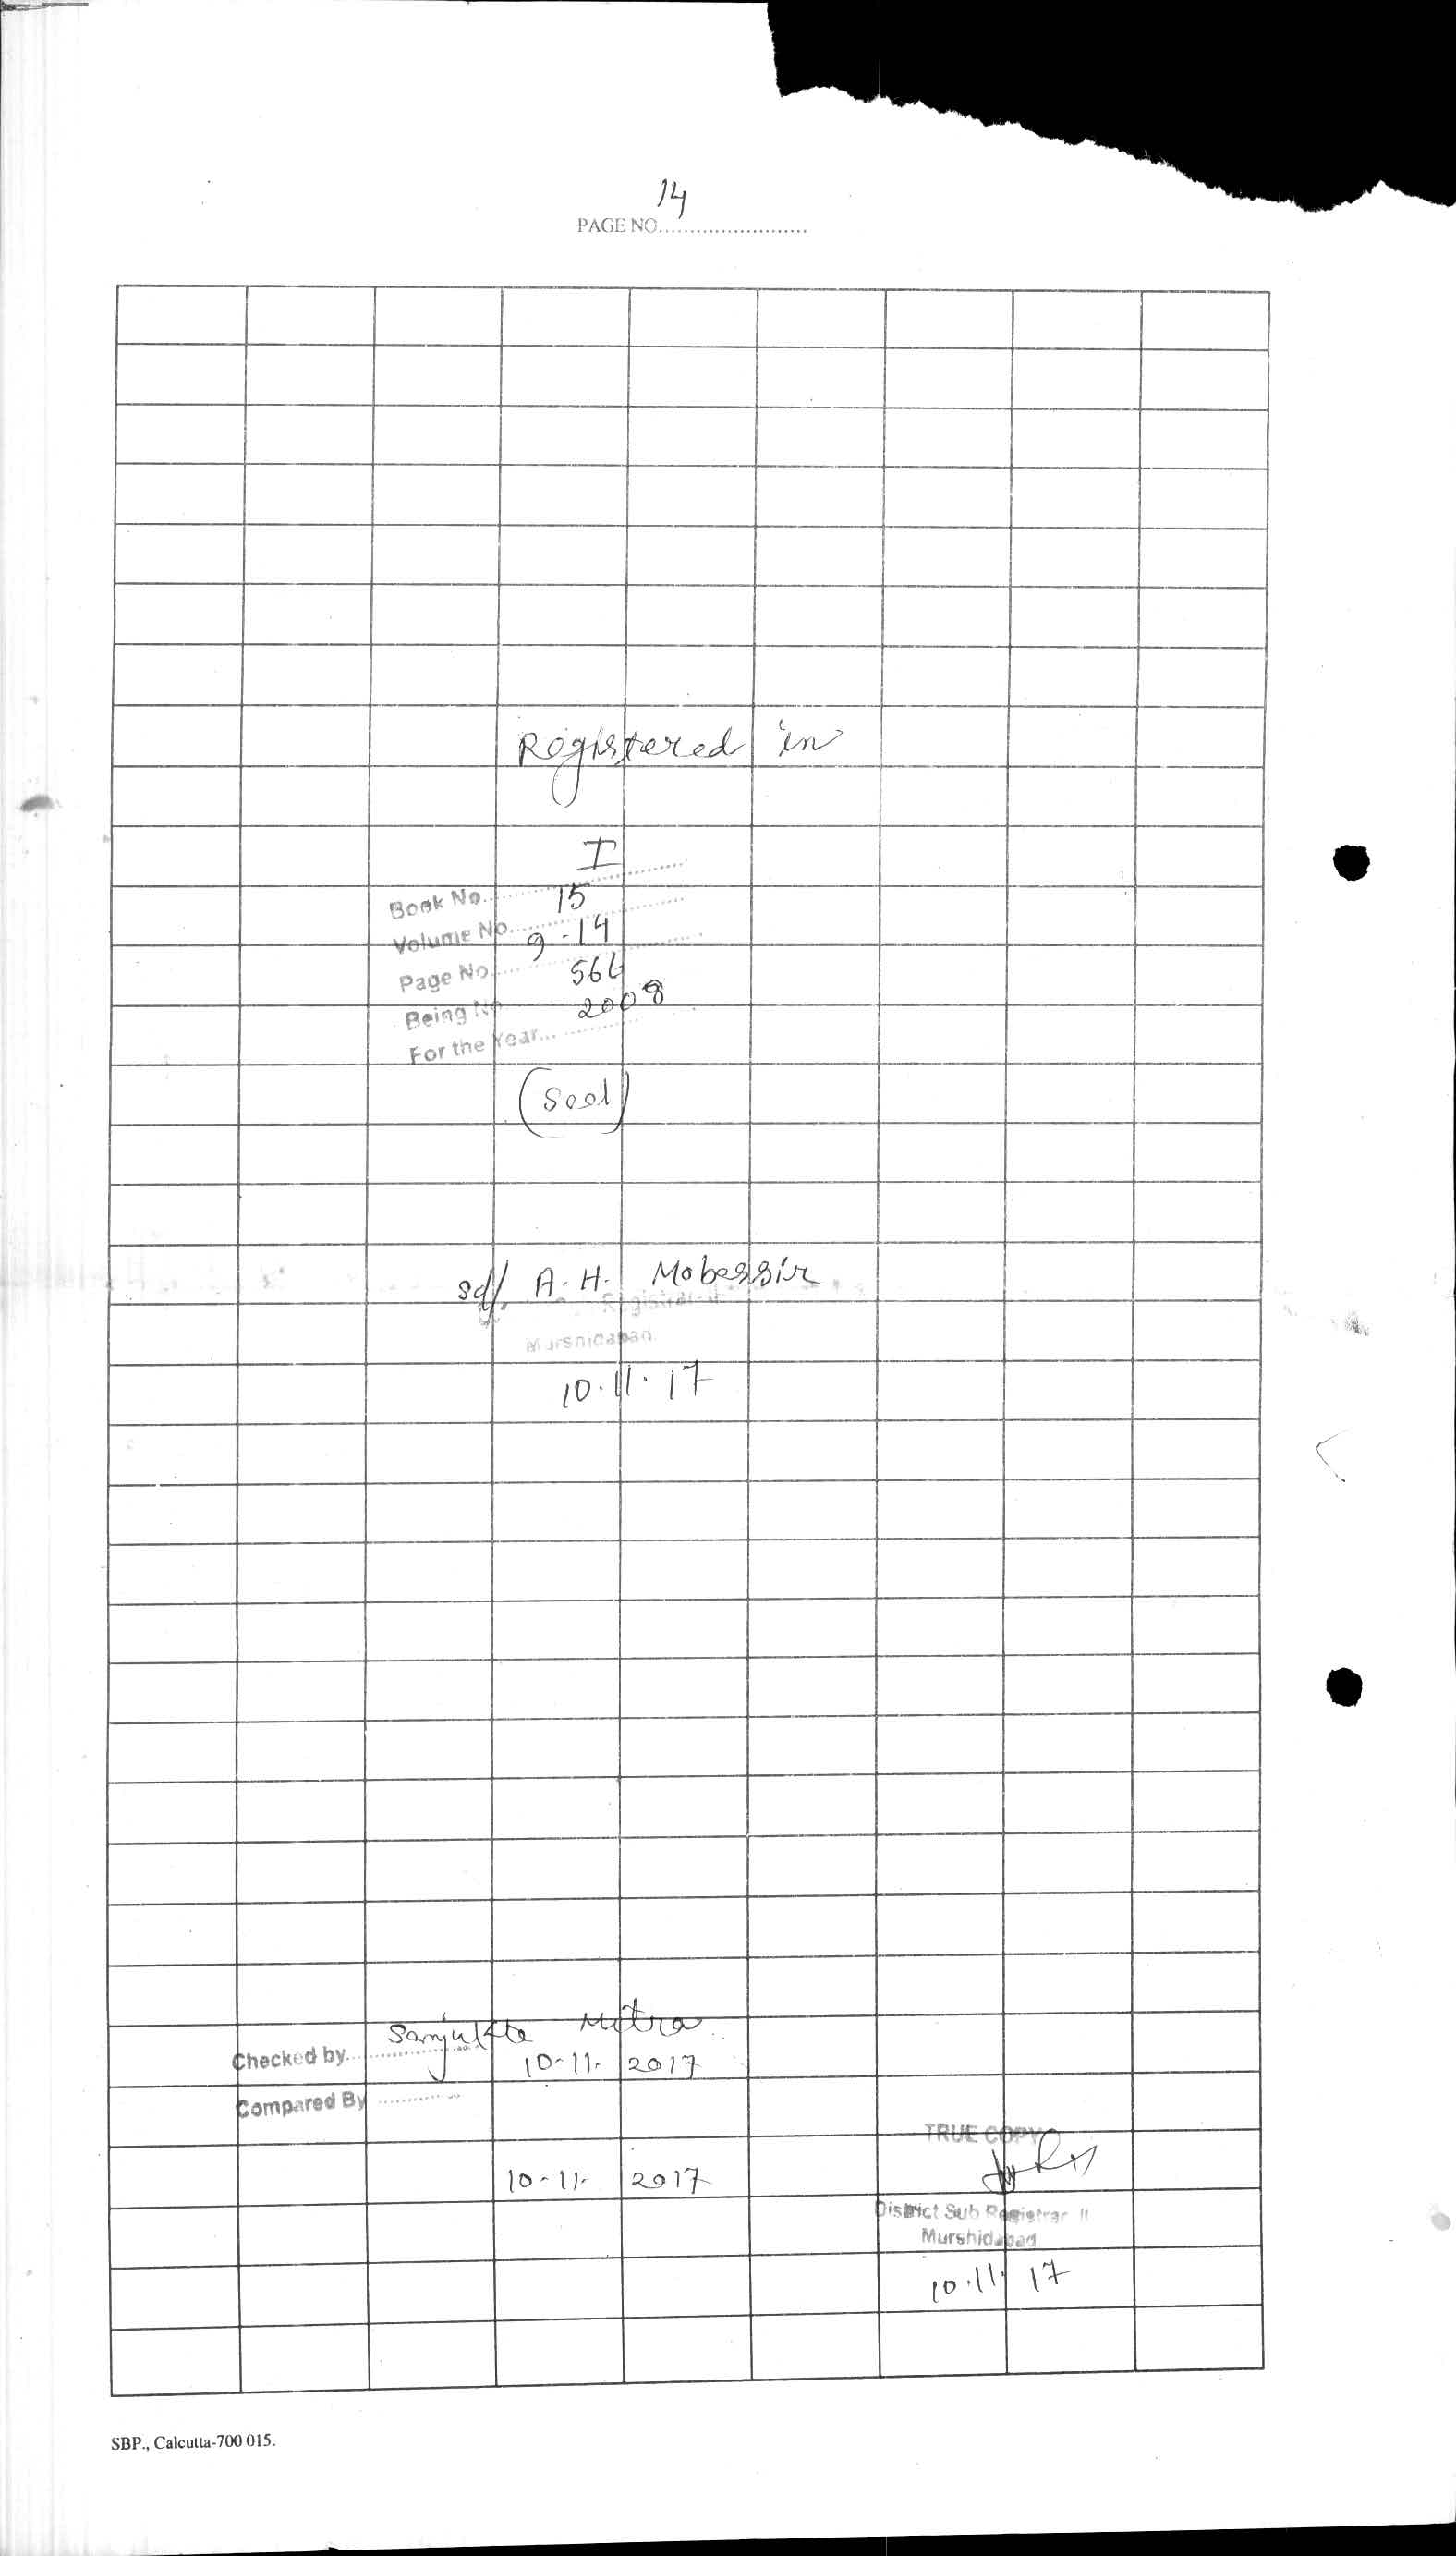 14
PAGE NO........................
Registered in
Book No. I
Volume No. 15
Page No. 9-14
Being No.
For the Year... 2008
(Seal)
sd/. A. H. Mobassir
Registrar-II
Murshidabad
10.11.17
Checked by. Sanjukta Mitra
10-11. 2017
Compared By
10-11- 2017
TRUE COPY
District Sub Registrar II
Murshidabad
10.11. 17
SBP., Calcutta-700 015.